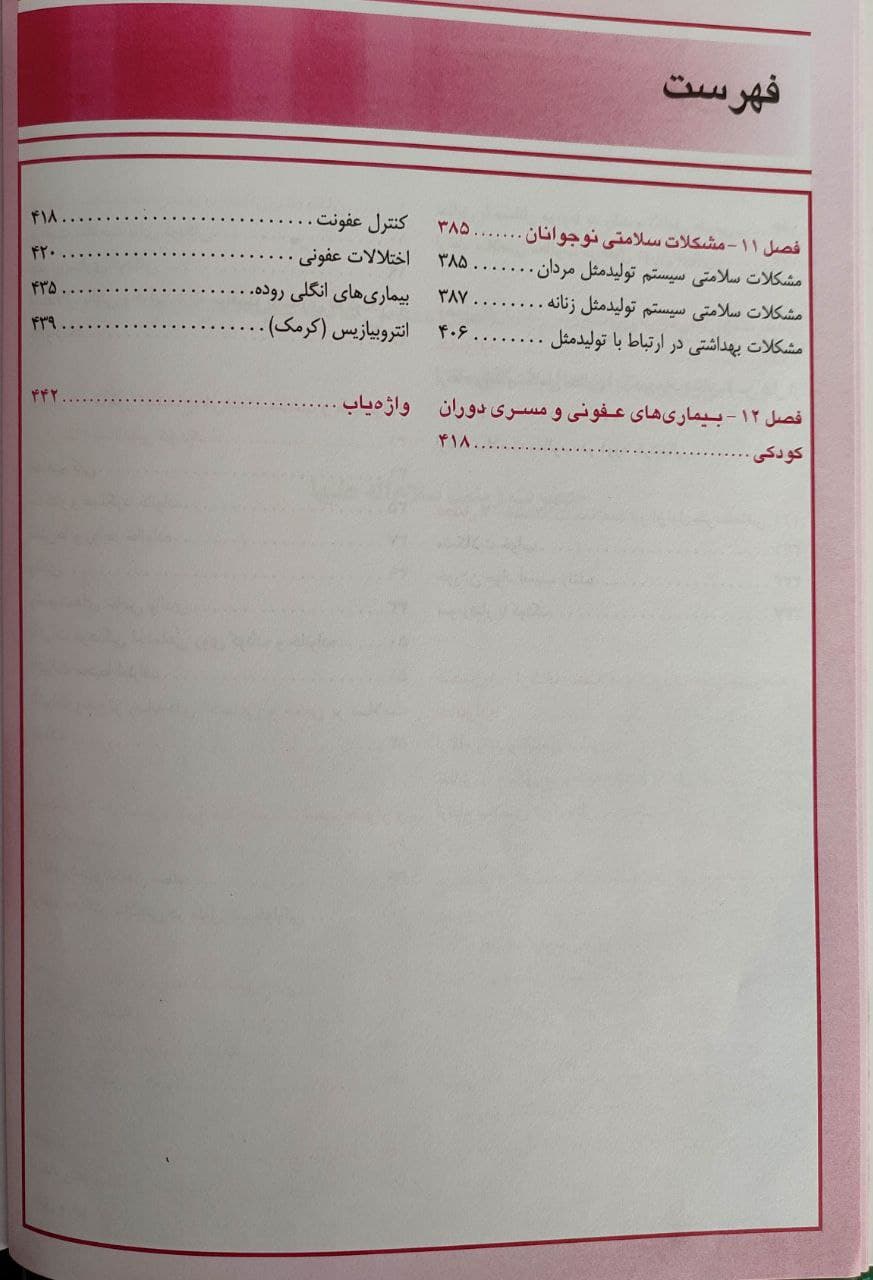 فهرست
فصل ۱۱ - مشکلات سلامتی نوجوانان ....... ۳۸۵
مشکلات سلامتی سیستم تولیدمثل مردان ........ ۳۸۵
مشکلات سلامتی سیستم تولیدمثل زنانه ......... ۳۸۷
مشکلات بهداشتی در ارتباط با تولیدمثل ......... ۴۰۶
فصل ۱۲ - بیماری‌های عفونی و مسری دوران
کودکی ..................................... ۴۱۸
کنترل عفونت ........................... ۴۱۸
اختلالات عفونی ......................... ۴۲۰
بیماری‌های انگلی روده ..................... ۴۳۵
انتروبیازیس (کرمک) ...................... ۴۳۹
واژه‌یاب .................................... ۴۴۲